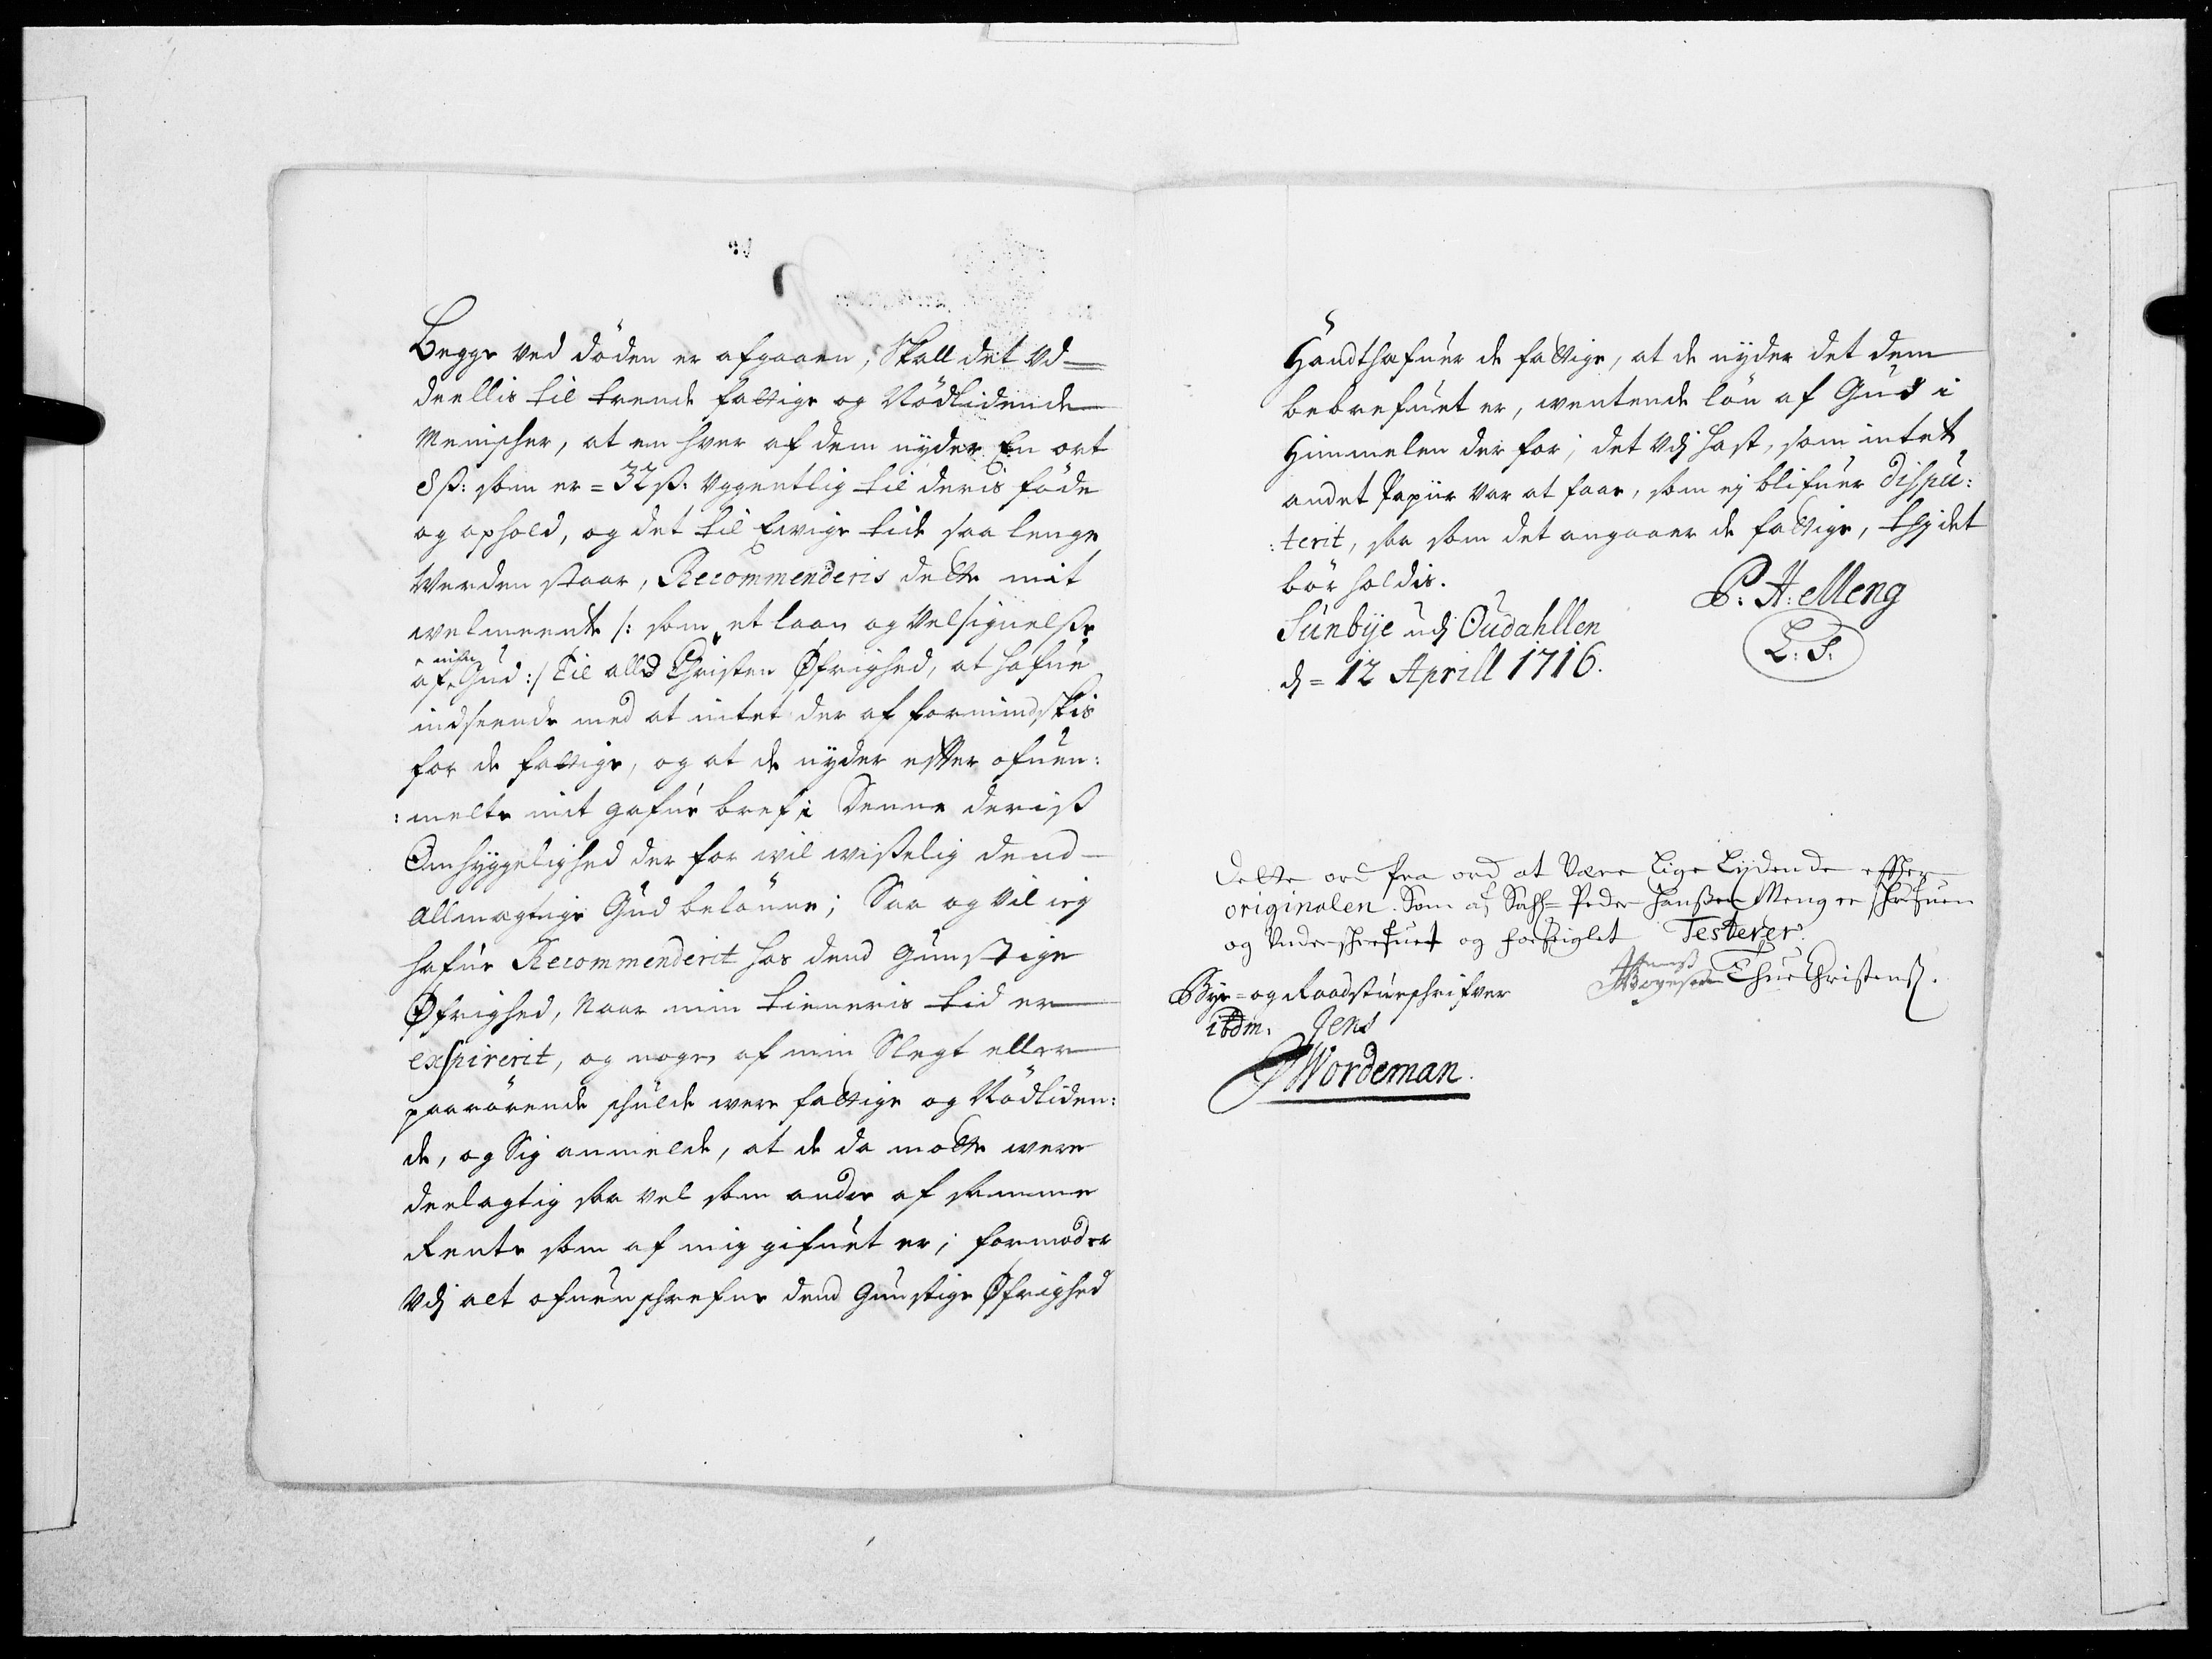 Begge ved döden er afgaaen, Skall det ud=
deellis til trende fattige og Nödlidende
Menischer, at en hver af dem nyder En ort
8 ß: som er = 32 ß. Uggentlig til deris föde
og ophold, og det til Ewige tide saa lenge
Werden staar, Recommenderis dette mit
welmeente /: som et laan og Velsignelße
af Gud :/ til alle Christen Øfrighed, at hafue
indseende med at intet der af formindskis
for de fattige, og at de nyder efter ofuen:
:melte mit gafue bref; Denne deriß
Omhyggelighed der for wil wißelig dend
Allmagtige Gud belönne; Saa og vil ieg
hafue Recommenderit hos dend Gunstige
Øfrighed, Naar min tieneris tid er
exspirerit, og nogen af min Slegt eller
paarörende schulde were fattige og Nödliden:
de, og Sig anmelde, at de da motte were
deelagtig saa vel som andre af samme
Rente som af mig gifuet er; formoder
Udj alt ofuenschrefne dend Gunstige Øfrighed
Handthafuer de fattige, at de nyder det dem
bebrefuet er, wentende lön af Gud i
Himmelen der for; det Udj hast, som intet
andet Papiir var at faae, som ej blifuer dispu:
:terit, saa som det angaaer de fattige, thj det
bör holdis.
P. H. Meng
Sunbye udj Oudahllen
L. S.
dj = 12 Aprill 1716.
Dette ord fra ord at Være Lige Lydende effter
originalen. Som af Sahl= Peder Hanßen Meng er schrefuen
og Underschrefuet og forsiglet Testerer
Bye= og Raadstueschrifver
Thue Christenß.
ibdm. Jens
Wordeman.